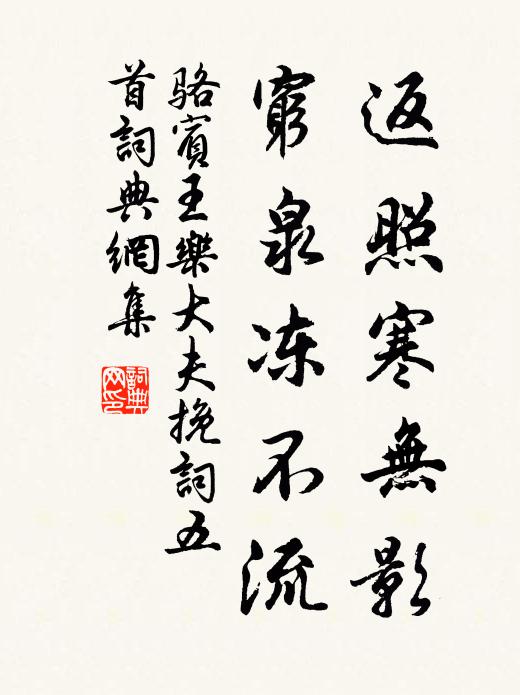 返照寒無影
窮泉冻不流
骆賓王樂大夫挽詞五
首詞典網集
詞典
网印